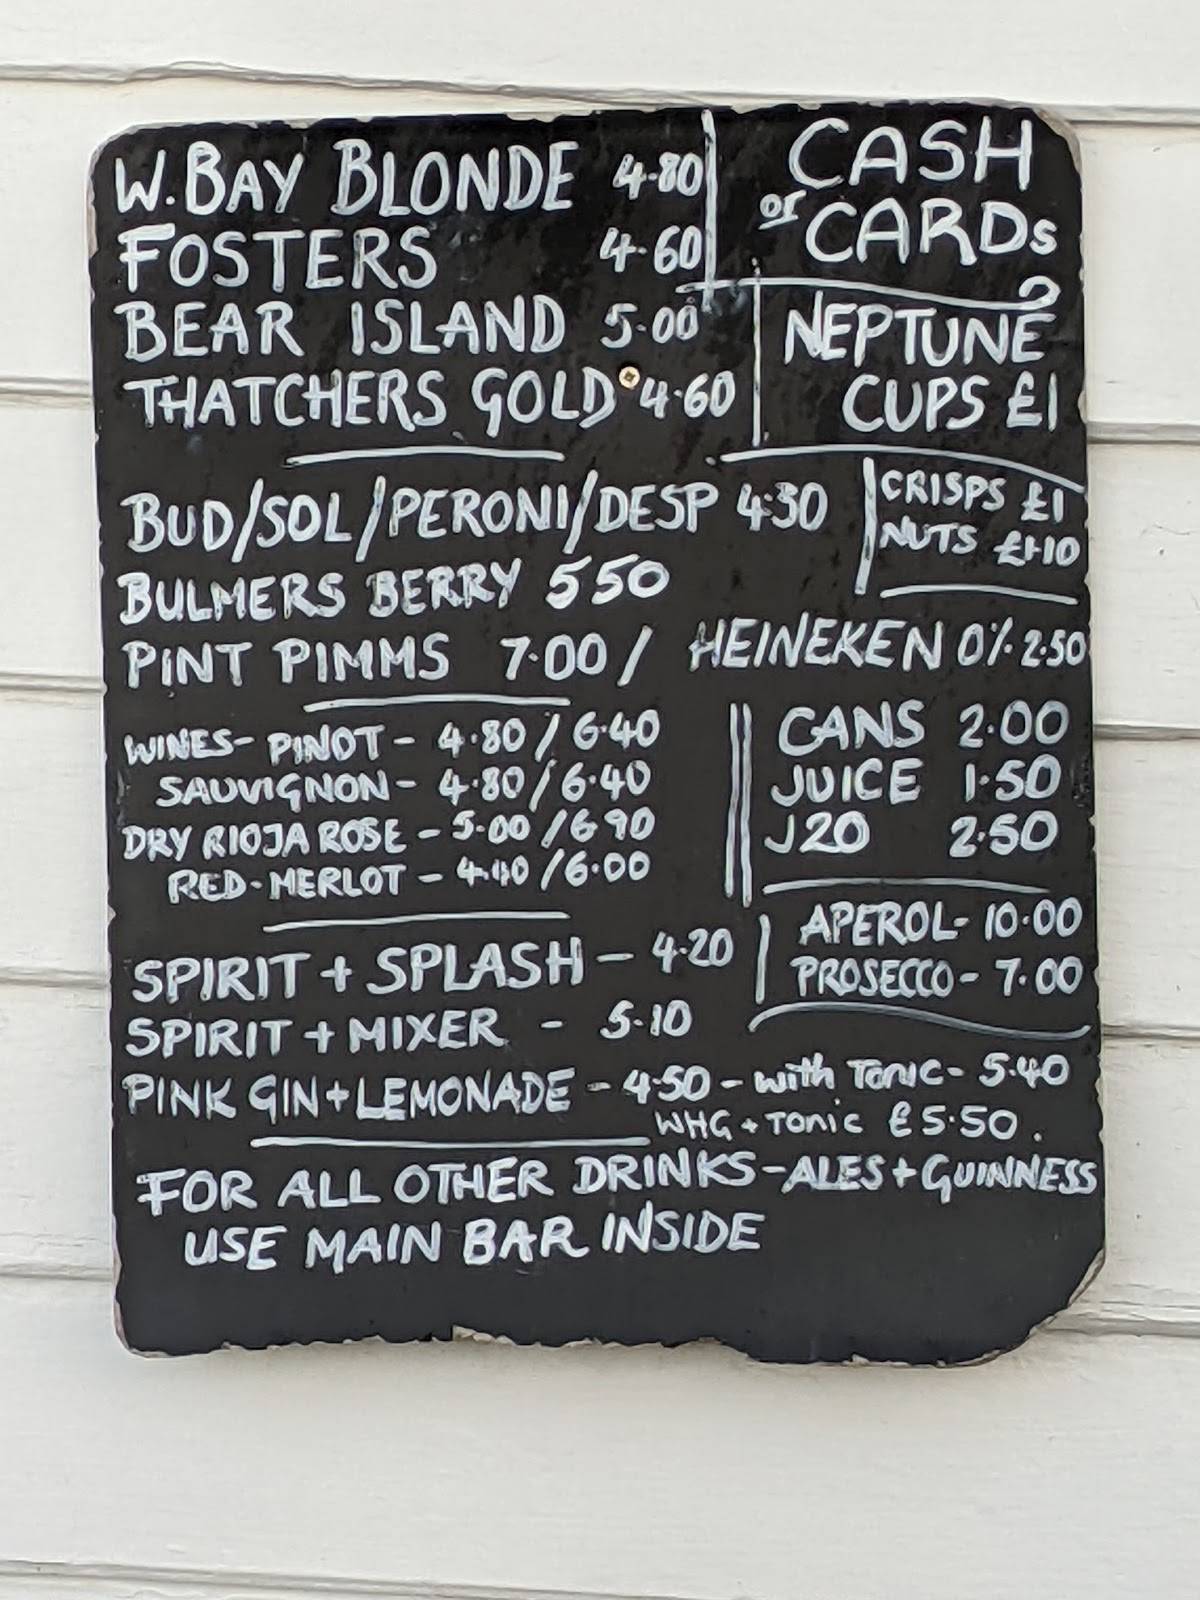 W. BAY BLONDE 4.80
FOSTERS 4.60
BEAR ISLAND 5.00
THATCHERS GOLD 4.60
CASH
or CARDs
NEPTUNE
CUPS £1
BUD/SOL/PERONI/DESP 4.30
BULMERS BERRY 550
PINT PIMMS 7.00 /
CRISPS £1
NUTS £1.10
HEINEKEN 0% 2.50
WINES- PINOT - 4.80 / 6.40
SAUVIGNON - 4.80 / 6.40
DRY RIOJA ROSE - 5.00 / 6 90
RED - MERLOT - 4.40 / 6.00
CANS 2.00
JUICE 1.50
J20 2.50
APEROL - 10.00
PROSECCO - 7.00
SPIRIT + SPLASH - 4.20
SPIRIT + MIXER - 5.10
PINK GIN + LEMONADE - 4.50 - with TONIC - 5.40
WHG + TONIC £5.50.
FOR ALL OTHER DRINKS - ALES + GUINNESS
USE MAIN BAR INSIDE